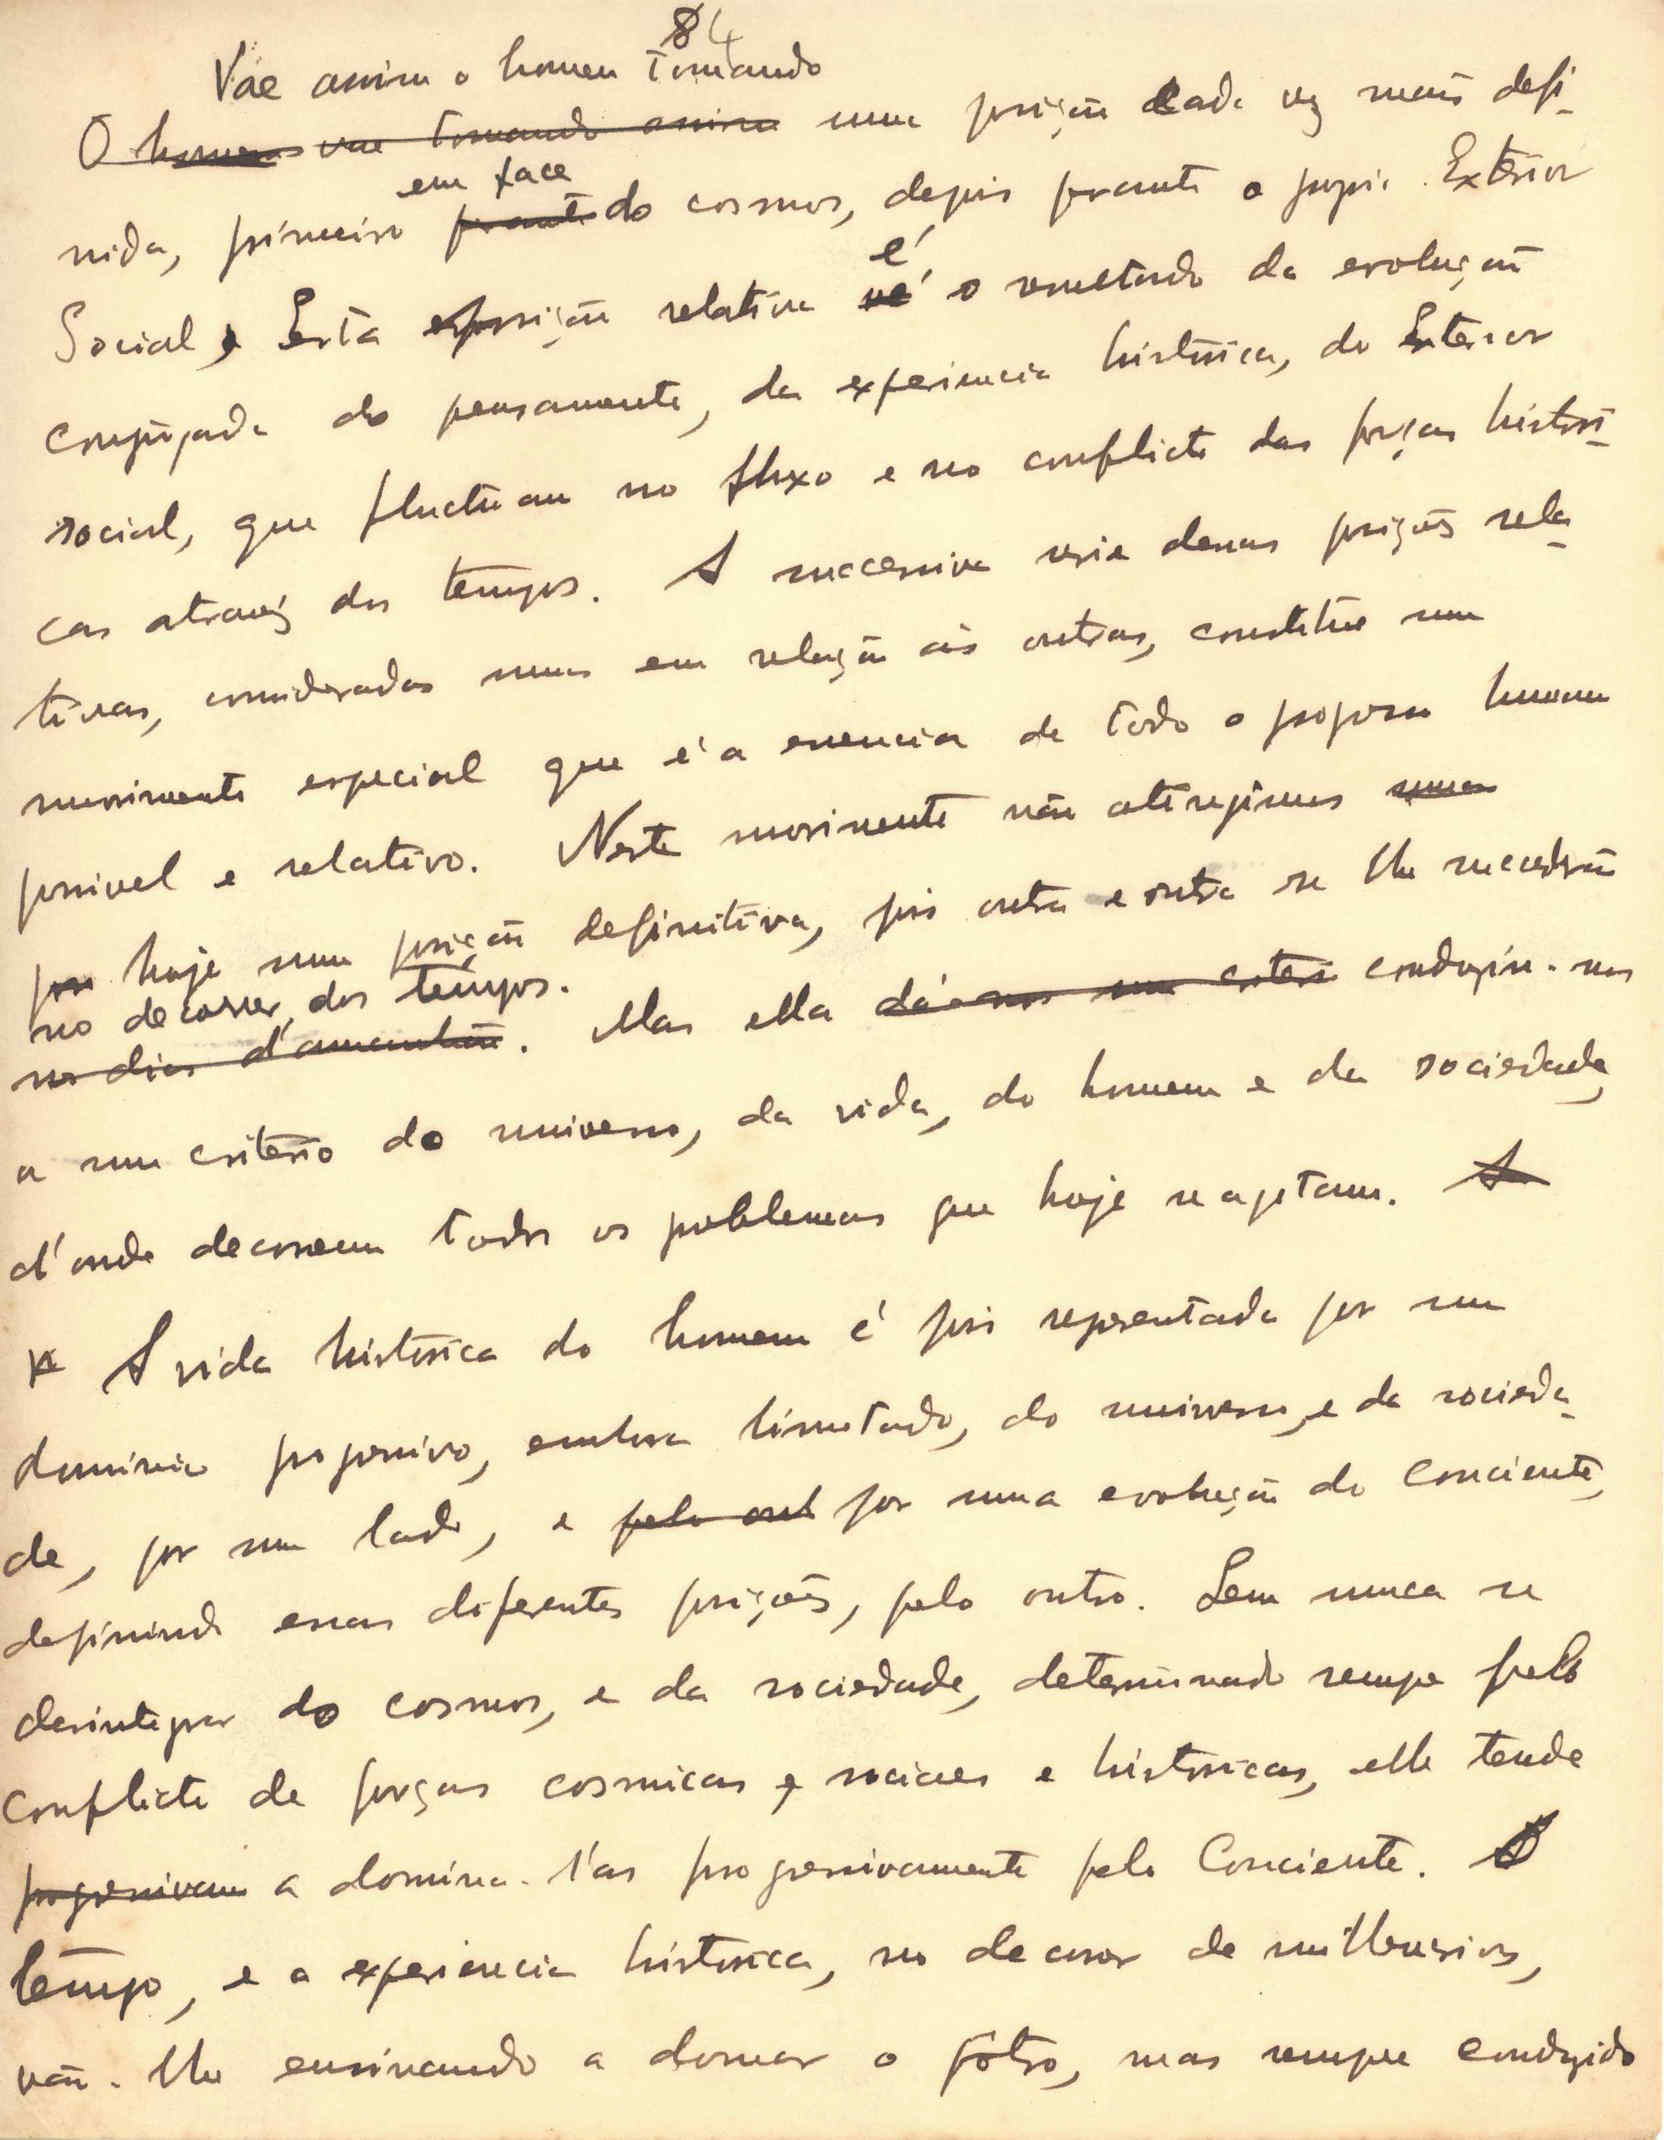 84
Váe assim o homem tomando
O homem vae tomando assim uma posição cada vez mais defi-
em face
nida, primeiro perante do cosmos, depois perante o proprio Exterior
é
Social, Esta posição relativa é o resultado da evolução
conjugada do pensamento, da experiencia histórica, do Exterior
social, que fluctuam no fluxo e no conflicto das forças histori-
cas através dos tempos. A successiva serie dessas posições rela-
tivas, consideradas umas em relação ás outras, constitue um
movimento especial que é a essencia de todo o progresso humano
possivel e relativo. Neste movimento não atingimos uma
por hoje uma posição definitiva, pois outra e outra se lhe sucederão
no decorrer dos tempos.
nos dias d'amanhã. Mas ella dá-nos um criterio conduziu-nos
a um critério do universo, da vida, do homem e da sociedade,
d'onde decorrem todos os problemas que hoje se agitam. A
A vida histórica do homem é pois representada por um
dominio progressivo, embora limitado, do universo, e da socieda-
de, por um lado, e pelo out por uma evolução do Conciente,
definindo essas diferentes posições, pelo outro. Sem nunca se
desintegrar do cosmos, e da sociedade, determinado sempre pelo
conflicto de forças cosmicas, sociaes e históricas, elle tende
progressivam a domina-l'as progressivamente pelo Conciente. O
tempo, e a experiencia histórica, no decorrer de millenarios,
vão-lhe ensinando a domar o potro, mas sempre conduzido